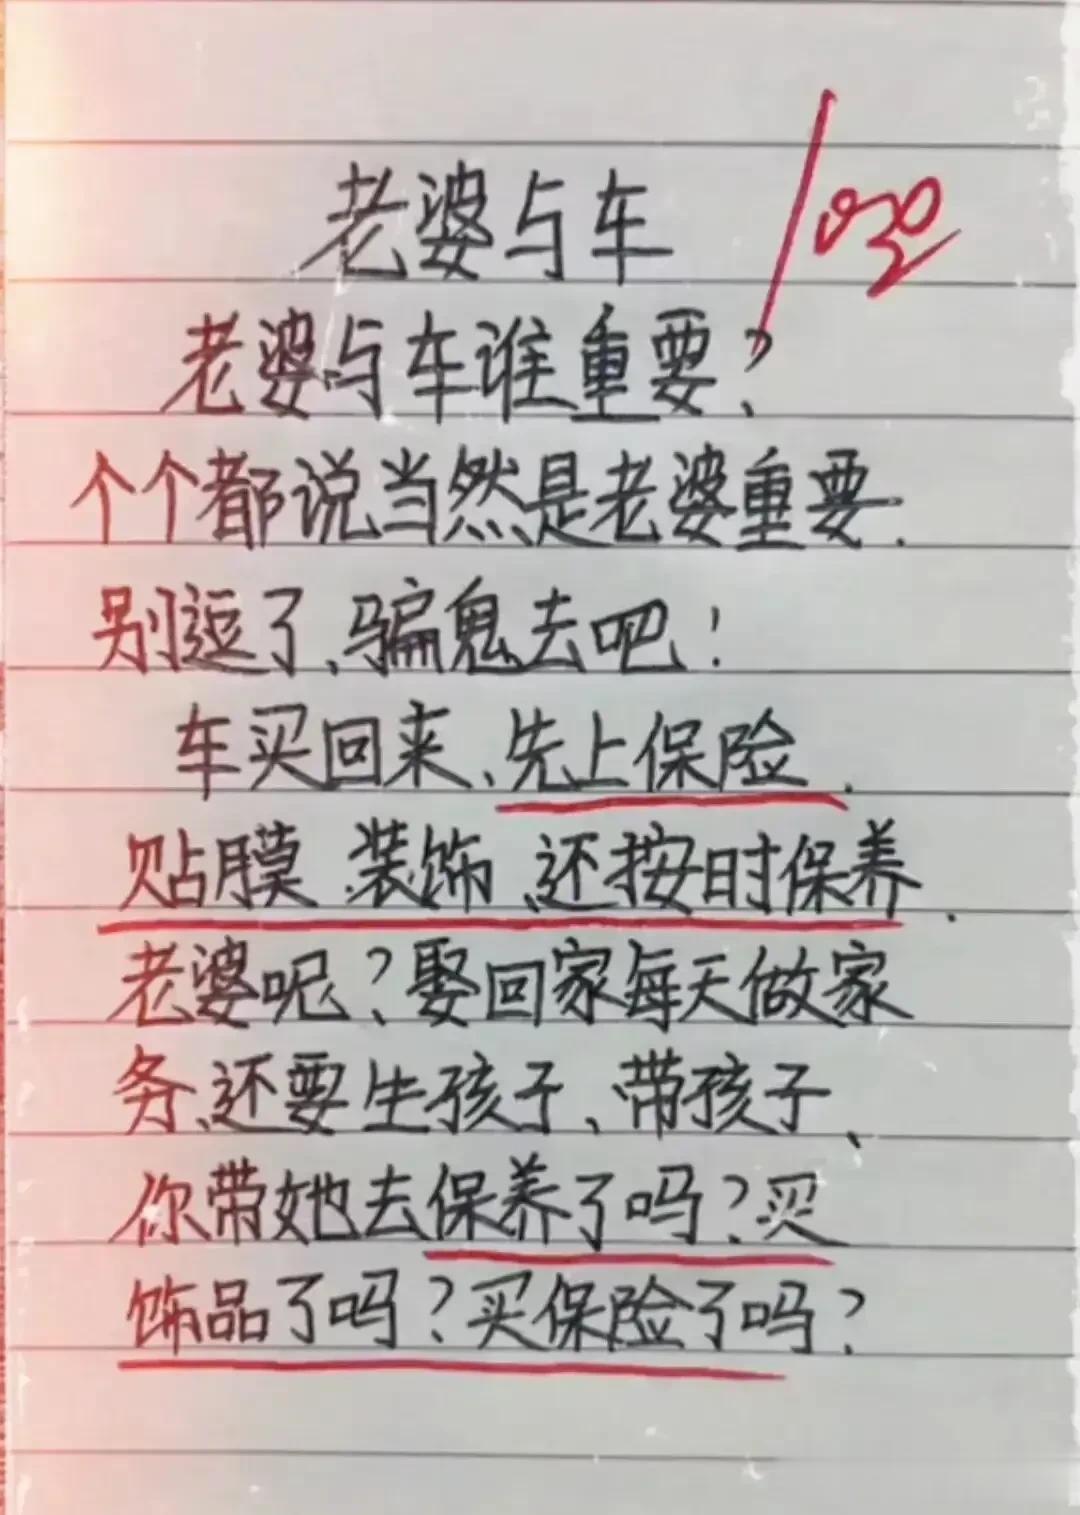 老婆与车
100
老婆与车谁重要?
个个都说当然是老婆重要.
别逗了、骗鬼去吧!
车买回来、先上保险.
贴膜、装饰、还按时保养.
老婆呢?娶回家每天做家
务、还要生孩子、带孩子、
你带她去保养了吗?买
饰品了吗?买保险了吗?